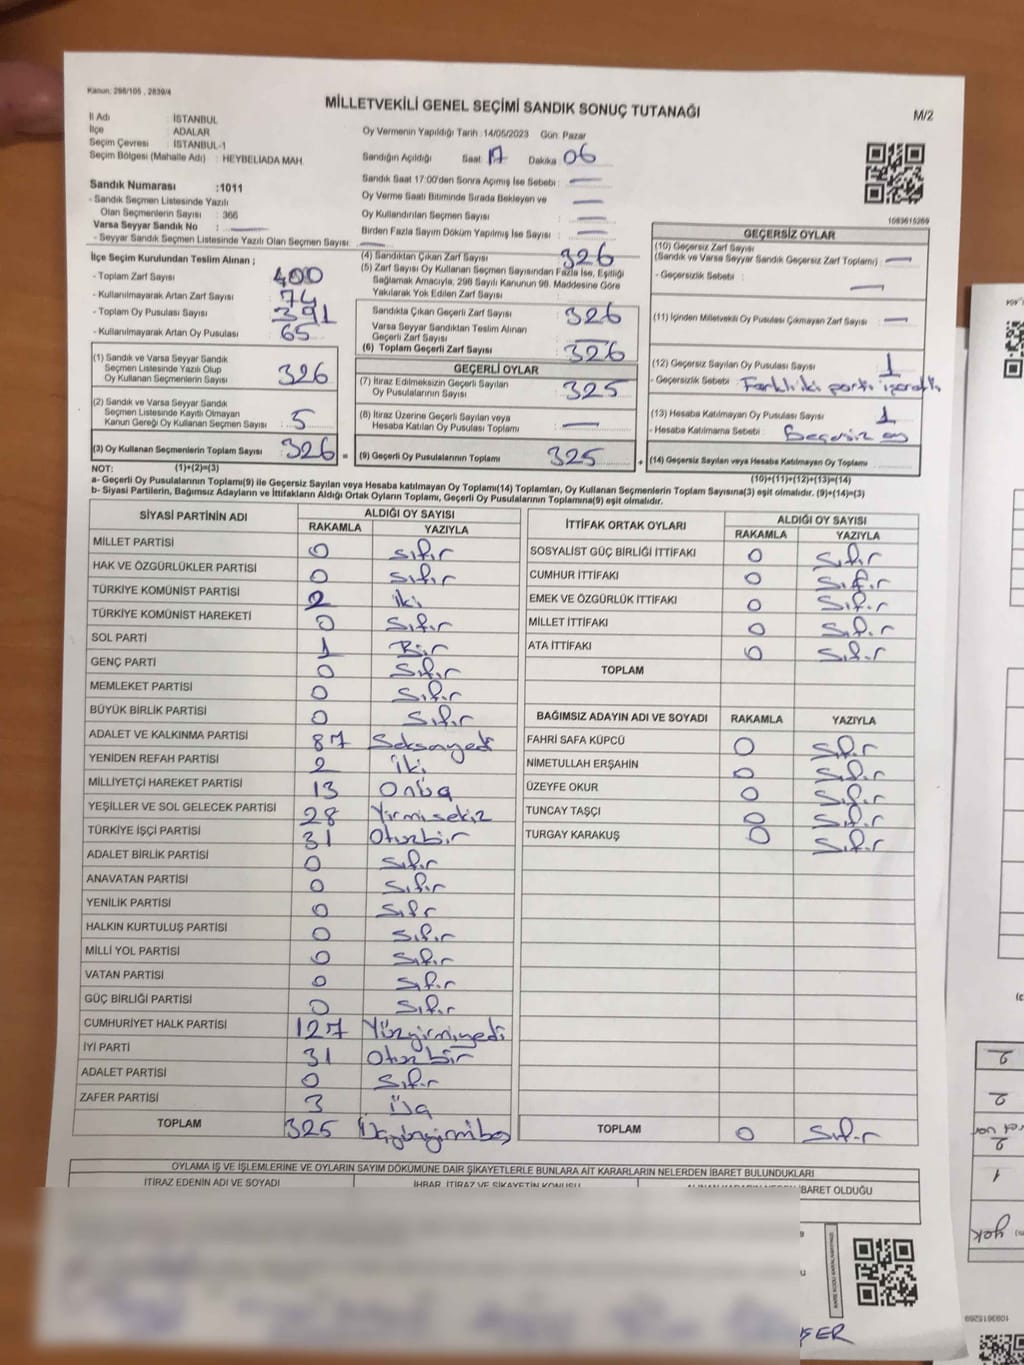 Kanun: 298/105 , 2839/4
MİLLETVEKİLİ GENEL SEÇİMİ SANDIK SONUÇ TUTANAĞI
M/2
İl Adı : İSTANBUL
İlçe : ADALAR
Seçim Çevresi : İSTANBUL-1
Seçim Bölgesi (Mahalle Adı) : HEYBELİADA MAH.
Oy Vermenin Yapıldığı Tarih :14/05/2023 Gün: Pazar
Sandığın Açıldığı Saat 17 Dakika 06
Sandık Saat 17:00'den Sonra Açımış İse Sebebi : —
Oy Verme Saati Bitiminde Sırada Bekleyen ve
Oy Kullandırılan Seçmen Sayısı : —
Birden Fazla Sayım Döküm Yapılmış İse Sayısı : —
1083615269
Sandık Numarası :1011
- Sandık Seçmen Listesinde Yazılı
Olan Seçmenlerin Sayısı : 366
Varsa Seyyar Sandık No : —
- Seyyar Sandık Seçmen Listesinde Yazılı Olan Seçmen Sayısı : —
İlçe Seçim Kurulundan Teslim Alınan ;
- Toplam Zarf Sayısı : 400
- Kullanılmayarak Artan Zarf Sayısı : 74
- Toplam Oy Pusulası Sayısı : 391
- Kullanılmayarak Artan Oy Pusulası : 65
(1) Sandık ve Varsa Seyyar Sandık
Seçmen Listesinde Yazılı Olup
Oy Kullanan Seçmenlerin Sayısı : 326
(2) Sandık ve Varsa Seyyar Sandık
Seçmen Listesinde Kayıtlı Olmayan
Kanun Gereği Oy Kullanan Seçmen Sayısı : 5
(3) Oy Kullanan Seçmenlerin Toplam Sayısı : 326 =
(4) Sandıktan Çıkan Zarf Sayısı : 326
(5) Zarf Sayısı Oy Kullanan Seçmen Sayısından Fazla İse, Eşitliği
Sağlamak Amacıyla, 298 Sayılı Kanunun 98. Maddesine Göre
Yakılarak Yok Edilen Zarf Sayısı :
Sandıkta Çıkan Geçerli Zarf Sayısı : 326
Varsa Seyyar Sandıktan Teslim Alınan
Geçerli Zarf Sayısı : —
(6) Toplam Geçerli Zarf Sayısı : 326
GEÇERLİ OYLAR
(7) İtiraz Edilmeksizin Geçerli Sayılan
Oy Pusulalarının Sayısı : 325
(8) İtiraz Üzerine Geçerli Sayılan veya
Hesaba Katılan Oy Pusulası Toplamı : —
(9) Geçerli Oy Pusulalarının Toplamı : 325 +
GEÇERSİZ OYLAR
(10) Geçersiz Zarf Sayısı
(Sandık ve Varsa Seyyar Sandık Geçersiz Zarf Toplamı) : —
- Geçersizlik Sebebi : —
(11) İçinden Milletvekili Oy Pusulası Çıkmayan Zarf Sayısı : —
(12) Geçersiz Sayılan Oy Pusulası Sayısı : 1
- Geçersizlik Sebebi : Farklı iki parti işaretli
(13) Hesaba Katılmayan Oy Pusulası Sayısı : 1
- Hesaba Katılmama Sebebi : Geçersiz oy
(14) Geçersiz Sayılan veya Hesaba Katılmayan Oy Toplamı :
NOT: (1)+(2)=(3)
(10)+(11)+(12)+(13)=(14)
a- Geçerli Oy Pusulalarının Toplamı(9) ile Geçersiz Sayılan veya Hesaba Katılmayan oy Toplamı(14) Toplamları, Oy Kullanan Seçmenlerin Toplam Sayısına(3) eşit olmalıdır. (9)+(14)=(3)
b- Siyasi Partilerin, Bağımsız Adayların ve İttifakların Aldığı Ortak Oyların Toplamı, Geçerli Oy Pusulalarının Toplamına(9) eşit olmalıdır.
SİYASİ PARTİNİN ADI ALDIĞI OY SAYISI
RAKAMLA YAZIYLA
MİLLET PARTİSİ 0 sıfır
HAK VE ÖZGÜRLÜKLER PARTİSİ 0 sıfır
TÜRKİYE KOMÜNİST PARTİSİ 2 iki
TÜRKİYE KOMÜNİST HAREKETİ 0 Sıfır
SOL PARTİ 1 Bir
GENÇ PARTİ 0 Sıfır
MEMLEKET PARTİSİ 0 Sıfır
BÜYÜK BİRLİK PARTİSİ 0 Sıfır
ADALET VE KALKINMA PARTİSİ 87 Seksenyedi
YENİDEN REFAH PARTİSİ 2 İki
MİLLİYETÇİ HAREKET PARTİSİ 13 Onüç
YEŞİLLER VE SOL GELECEK PARTİSİ 28 Yirmisekiz
TÜRKİYE İŞÇİ PARTİSİ 31 Otuzbir
ADALET BİRLİK PARTİSİ 0 Sıfır
ANAVATAN PARTİSİ 0 Sıfır
YENİLİK PARTİSİ 0 Sıfr
HALKIN KURTULUŞ PARTİSİ 0 Sıfır
MİLLİ YOL PARTİSİ 0 Sıfır
VATAN PARTİSİ 0 Sıfır
GÜÇ BİRLİĞİ PARTİSİ 0 Sıfır
CUMHURİYET HALK PARTİSİ 127 Yüzyirmiyedi
İYİ PARTİ 31 Otuzbir
ADALET PARTİSİ 0 Sıfır
ZAFER PARTİSİ 3 Üç
TOPLAM 325 Üçyüzyirmibeş
İTTİFAK ORTAK OYLARI ALDIĞI OY SAYISI
RAKAMLA YAZIYLA
SOSYALİST GÜÇ BİRLİĞİ İTTİFAKI 0 Sıfır
CUMHUR İTTİFAKI 0 Sıfır
EMEK VE ÖZGÜRLÜK İTTİFAKI 0 Sıfır
MİLLET İTTİFAKI 0 Sıfır
ATA İTTİFAKI 0 Sıfır
TOPLAM
BAĞIMSIZ ADAYIN ADI VE SOYADI RAKAMLA YAZIYLA
FAHRİ SAFA KÜPCÜ 0 Sıfır
NİMETULLAH ERŞAHİN 0 Sıfır
ÜZEYFE OKUR 0 Sıfır
TUNCAY TAŞÇI 0 Sıfır
TURGAY KARAKUŞ 0 Sıfır
TOPLAM 0 Sıfır
OYLAMA İŞ VE İŞLEMLERİNE VE OYLARIN SAYIM DÖKÜMÜNE DAİR ŞİKAYETLERLE BUNLARA AİT KARARLARIN NELERDEN İBARET BULUNDUKLARI
İTİRAZ EDENİN ADI VE SOYADI İHBAR, İTİRAZ VE ŞİKAYETİN KONUSU BARET OLDUĞU